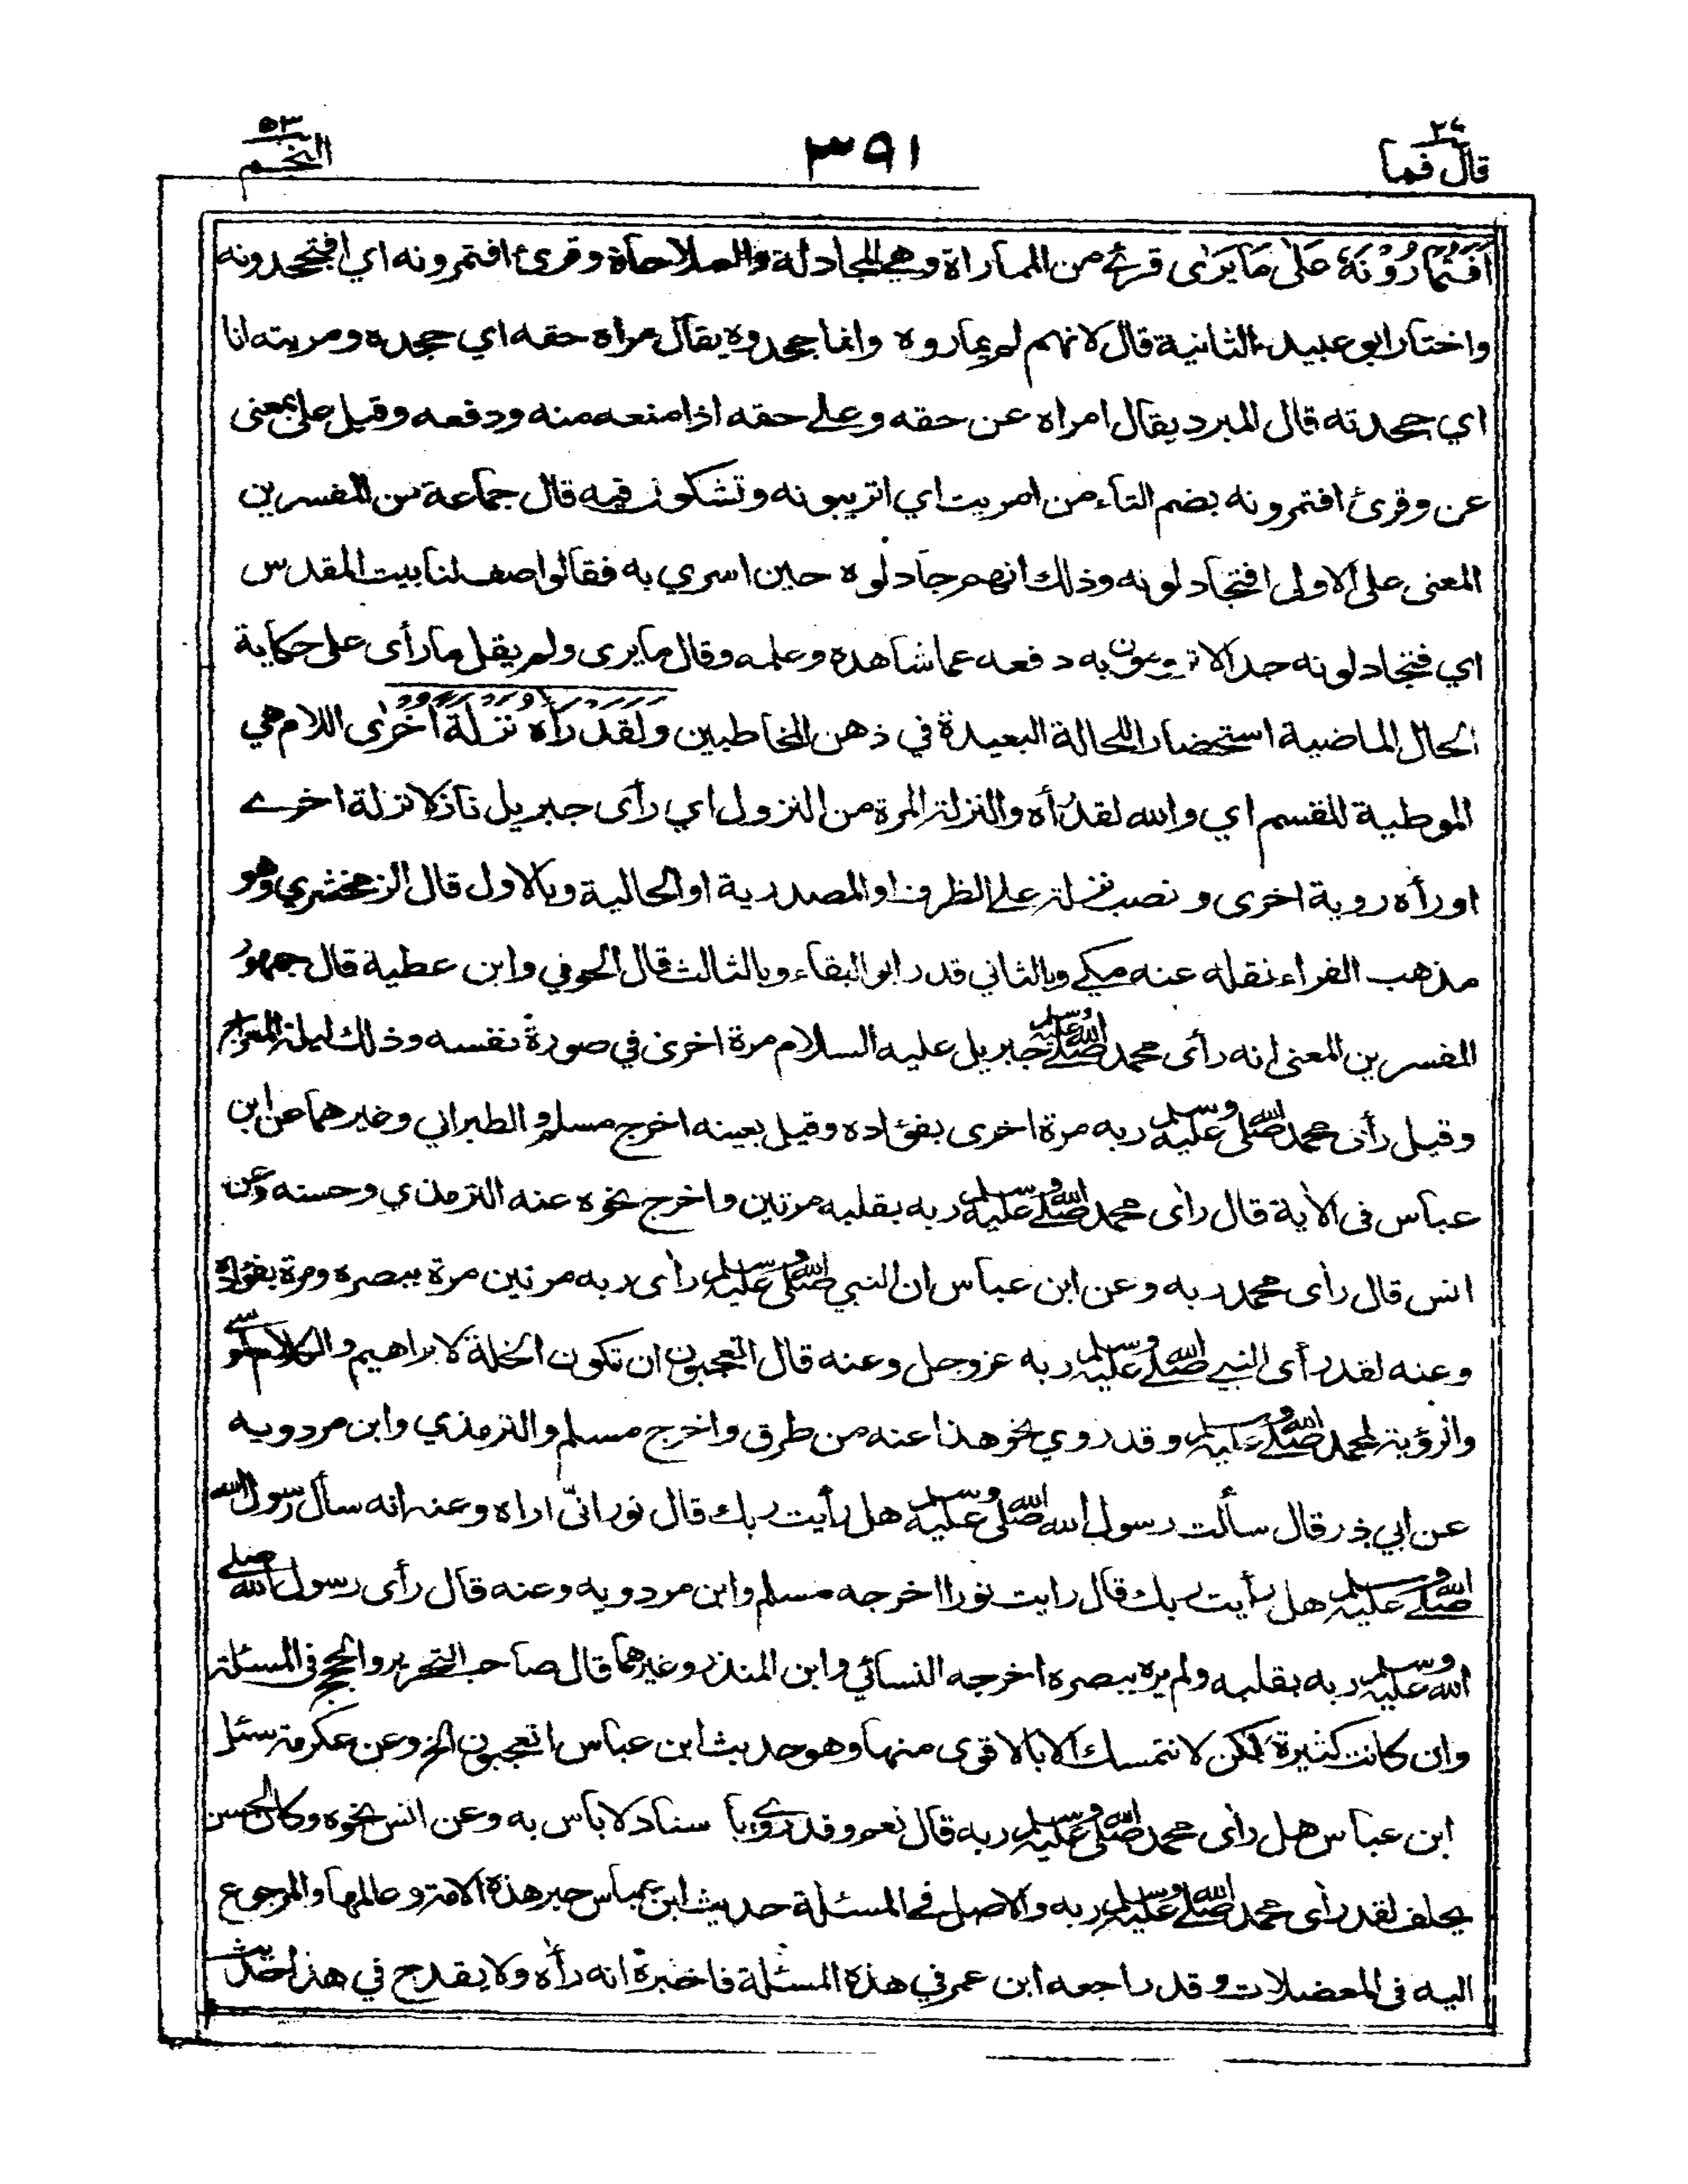 قال فما ٢٧
٣٩١
النجم ٥٣
اَفَتُمَارُوْنَهٗ عَلٰى مَا يَرٰى قرئ من المماراة وهي المجادلة والملاحاة وقرئ افتمرونه اي افتجحدونه
واختار ابو عبيد الثانية قال لانهم لم يماروه وانما جحدوه يقال مراه حقه اي جحده ومريته انا
اي جحدته قال المبرد يقال امراه عن حقه وعلى حقه اذا منعه منه ودفعه وقيل على بمعنى
عن وقرئ افتمرونه بضم التاء من امريت اي اتريبونه وتشكون فيه قال جماعة من المفسرين
المعنى على الاولى افتجادلونه وذلك انهم جادلوه حين اسري به فقالوا صف لنا بيت المقدس
اي فتجادلونه جدالا ترومون به دفعه عما شاهده وعلمه وقال ما يرى ولم يقل ما رأى على حكاية
الحال الماضية استحضارا للحالة البعيدة في ذهن المخاطبين وَلَقَدْ رَاٰهُ نَزْلَةً اُخْرٰى اللام هي
الموطية للقسم اي والله لقد رأه والنزلة المرة من النزول اي رأى جبريل نازلا نزلة اخرى
او رأه روية اخرى ونصب نزلة على الظرف او المصدرية او الحالية وبالاول قال الزمخشري وهو
مذهب الفراء نقله عنه مكي وبالثاني قدر ابو البقاء وبالثالث قال الحوفي وابن عطية قال جمهور
المفسرين المعنى انه رأى محمد صلى الله عليه وسلم جبريل عليه السلام مرة اخرى في صورة نفسه وذلك ليلة المعراج
وقيل رأى محمد صلى الله عليه وسلم ربه مرة اخرى بفؤاده وقيل بعينه اخرج مسلم والطبراني وغيرهما عن ابن
عباس في الاية قال رأى محمد صلى الله عليه وسلم ربه بقلبه مرتين واخرج نحوه عنه الترمذي وحسنه وعن
انس قال رأى محمد ربه وعن ابن عباس ان النبي صلى الله عليه وسلم رأى ربه مرتين مرة ببصره ومرة بفؤاده
وعنه لقد رأى النبي صلى الله عليه وسلم ربه عز وجل وعنه قال اتعجبون ان تكون الخلة لابراهيم والكلام لموسى
والرؤية لمحمد صلى الله عليه وسلم وقد روي نحو هذا عنه من طرق واخرج مسلم والترمذي وابن مردويه
عن ابي ذر قال سألت رسول الله صلى الله عليه وسلم هل رأيت ربك قال نور انّى اراه وعنه انه سأل رسول الله
صلى الله عليه وسلم هل رأيت ربك قال رايت نورا اخرجه مسلم وابن مردويه وعنه قال رأى رسول الله صلى
الله عليه وسلم ربه بقلبه ولم يره ببصره اخرجه النسائي وابن المنذر وغيرهما قال صاحب التحرير والحجج في المسئلة
وان كانت كثيرة لكن لا نتمسك الا بالاقوى منها وهو حديث ابن عباس اتعجبون الخ وعن عكرمة سئل
ابن عباس هل رأى محمد صلى الله عليه وسلم ربه قال نعم وقد روي با سناد لا باس به وعن انس نحوه وكان الحسن
يحلف لقد رأى محمد صلى الله عليه وسلم ربه والاصل في المسئلة حديث ابن عباس حبر هذه الامة وعالمها والمرجوع
اليه في المعضلات وقد راجعه ابن عمر في هذه المسئلة فاخبره انه رأه ولا يقدح في هذا حديث